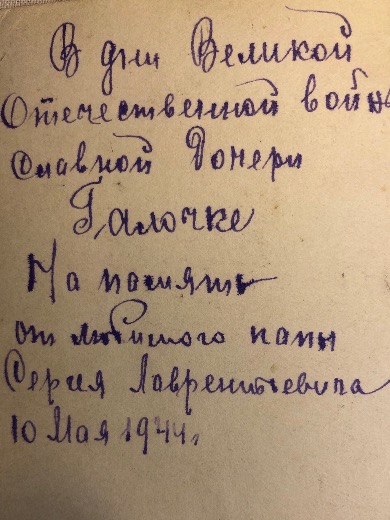 В дни Великой
Отечественной войны
славной Дочери
Галочке
На память
от любимого папы
Сергея Лаврентьевича
10 Мая 1944г.